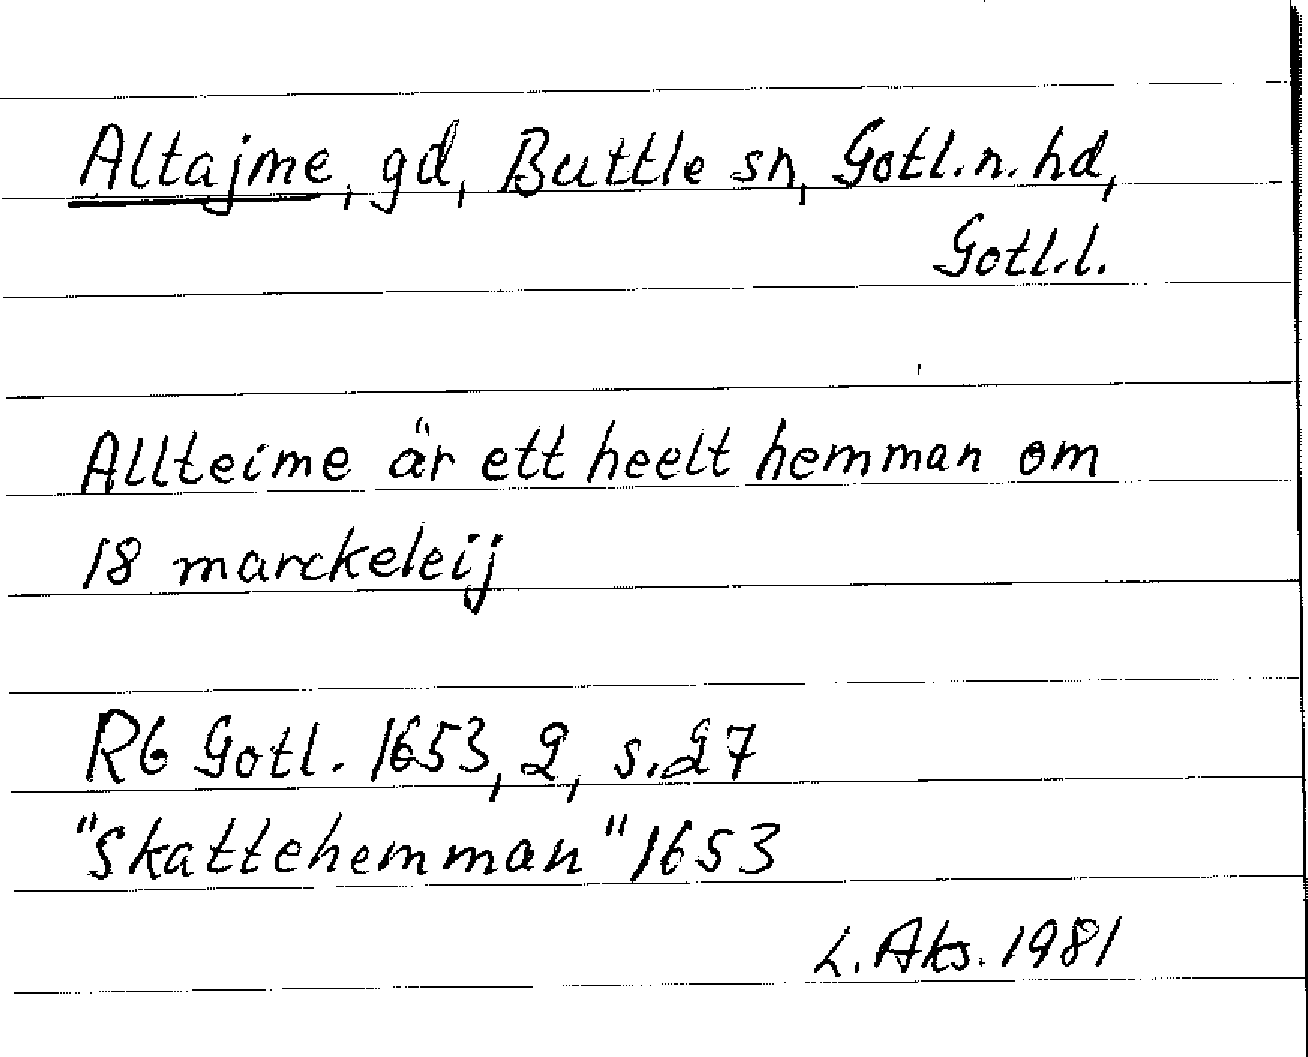 Altajme, gd, Buttle sn, Gotl.n.hd,
Gotl.l.
Allteime är ett heelt hemman om
18 marckeleij
Rb Gotl. 1653, 2, s. 27
"Skattehemman" 1653
L. Aks. 1981